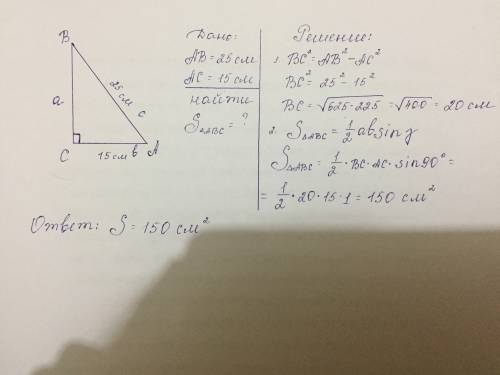 B
a
25 см
c
C
15 см
в
A
Дано:
AB = 25 см
AC = 15 см
найти
S△ABC = ?
Решение:
1. BC² = AB² - AC²
BC² = 25² - 15²
BC = √625 - 225 = √400 = 20 см
2. S△ABC = 1/2 ab sin γ
S△ABC = 1/2 · BC · AC · sin 90° =
= 1/2 · 20 · 15 · 1 = 150 см²
Ответ: S = 150 см²